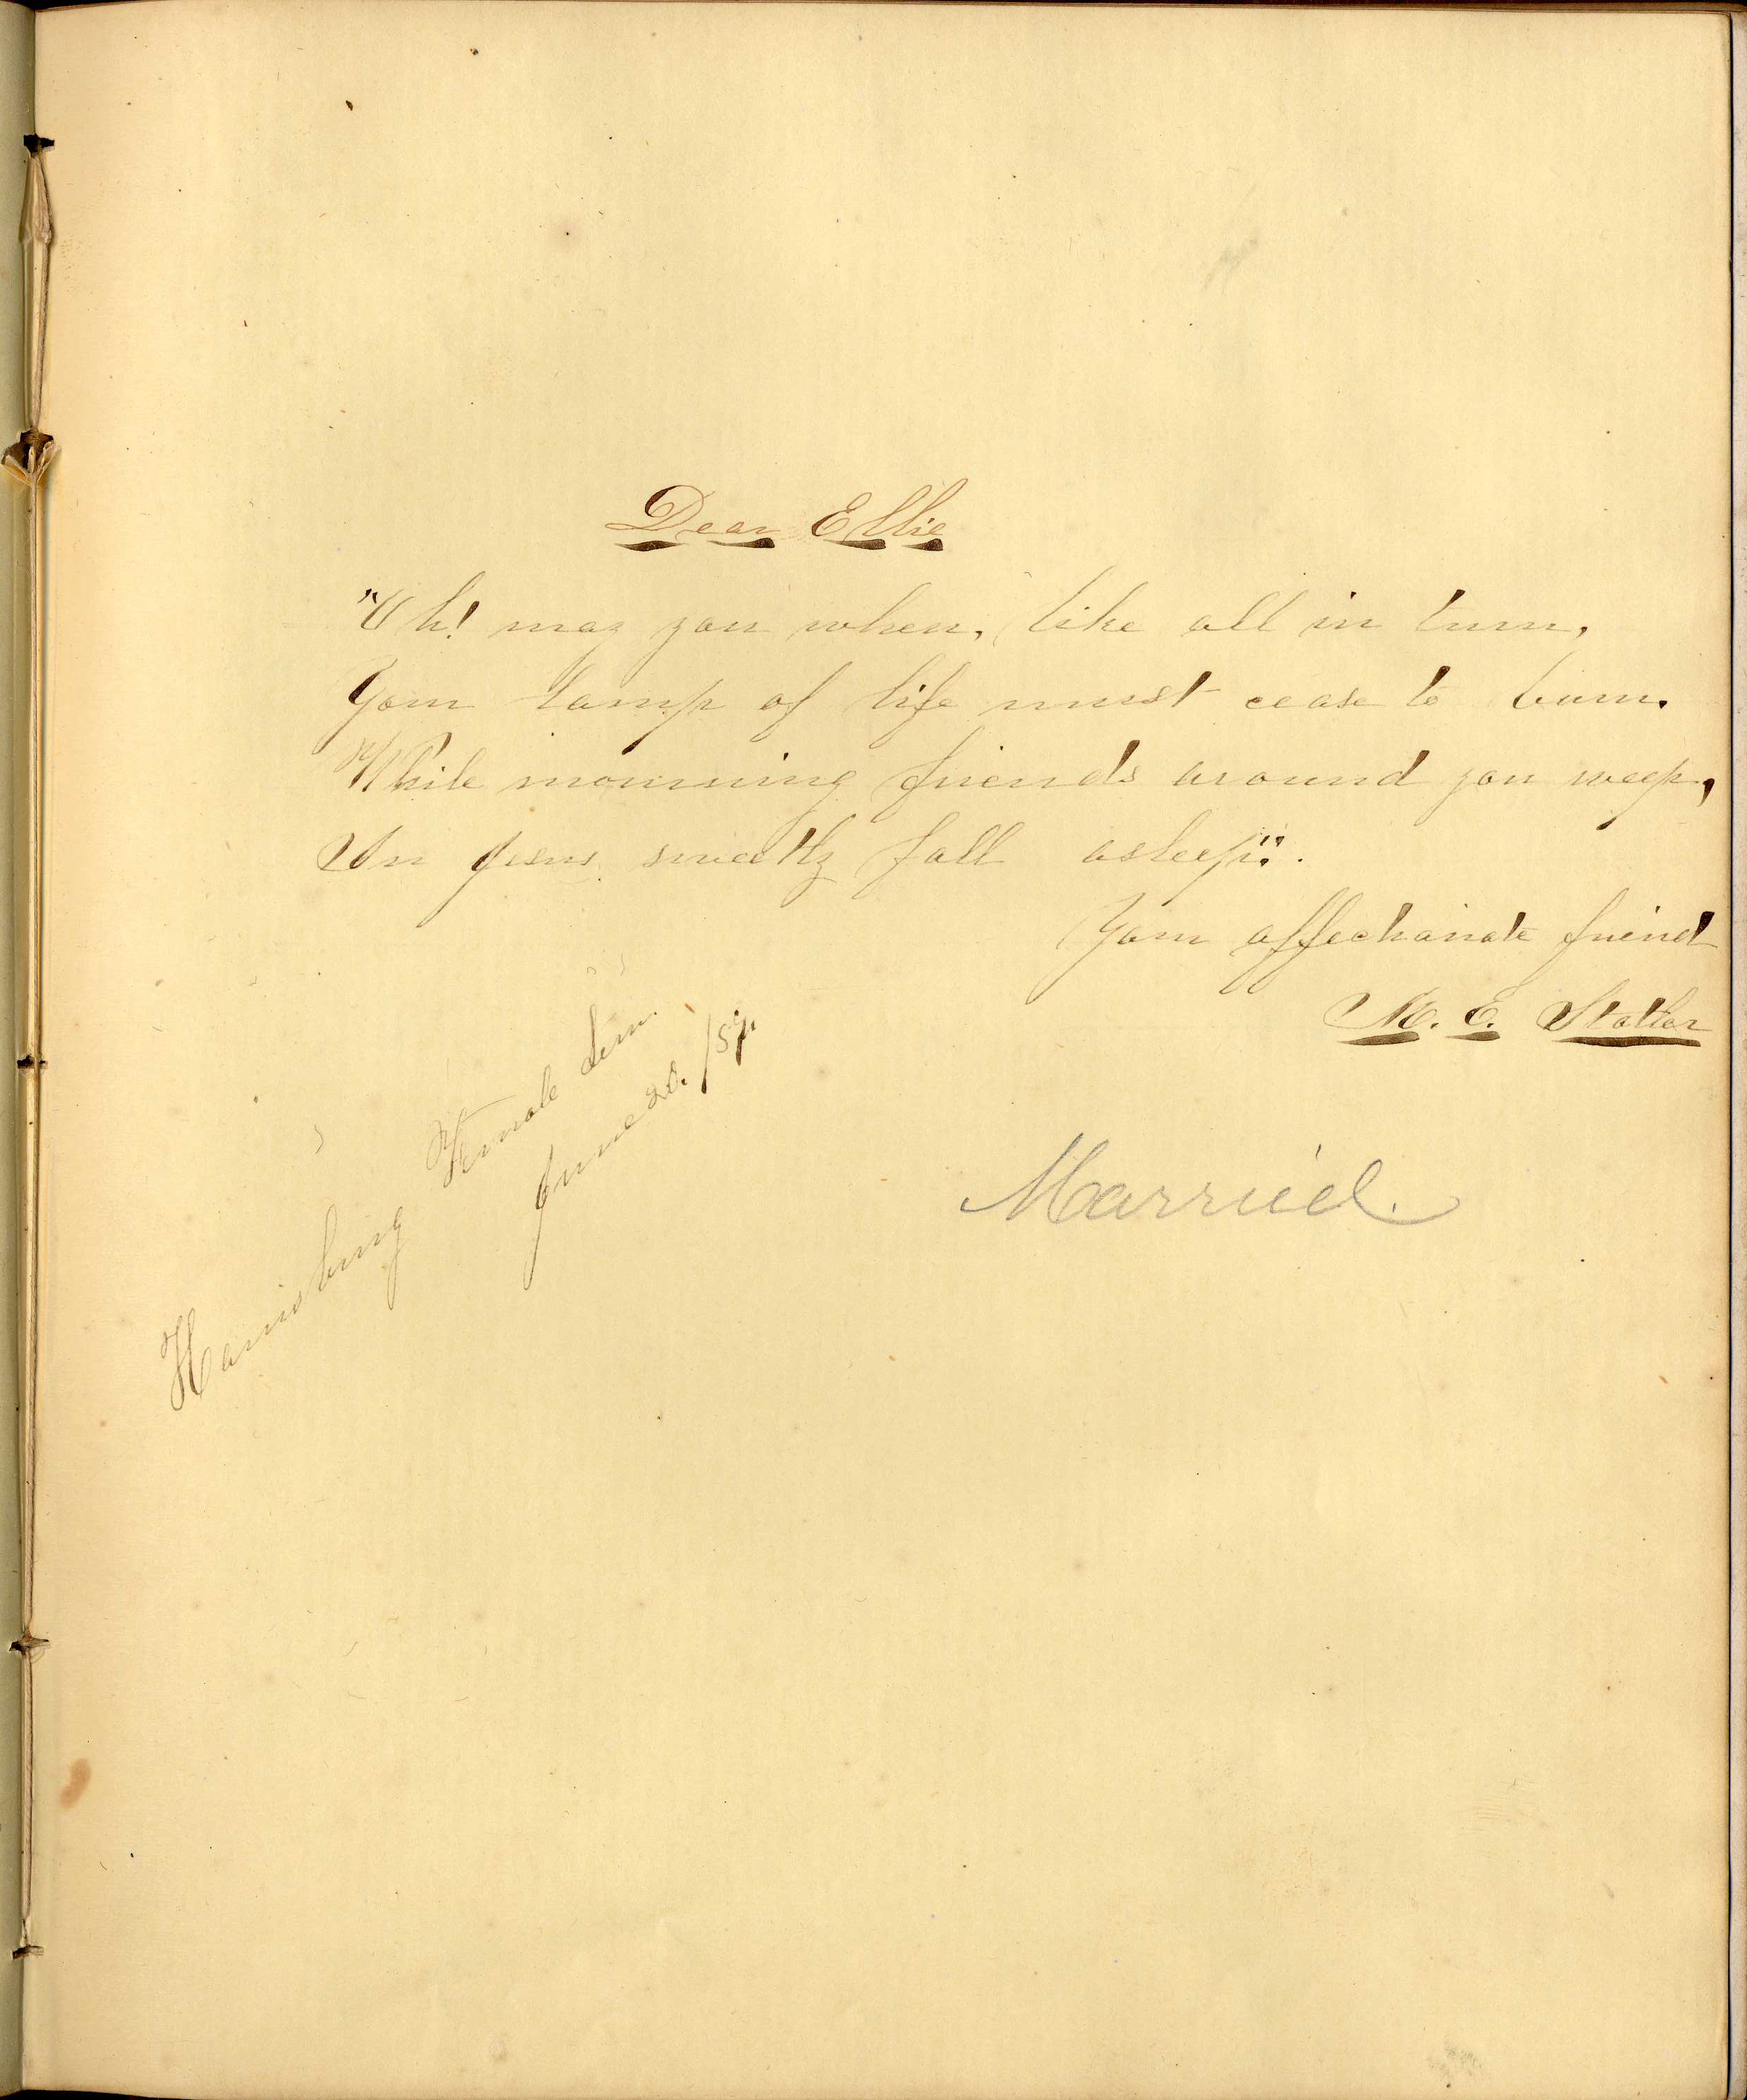 Dear Ellie
"Oh! may you when, like all in turn,
Your lamp of life must cease to burn.
While mourning friends around you weep,
In Jesus sweetly fall asleep".
Your affectionate friend
M. E. Statler
Harrisburg Female Sem.
June 20. /57.
Married.